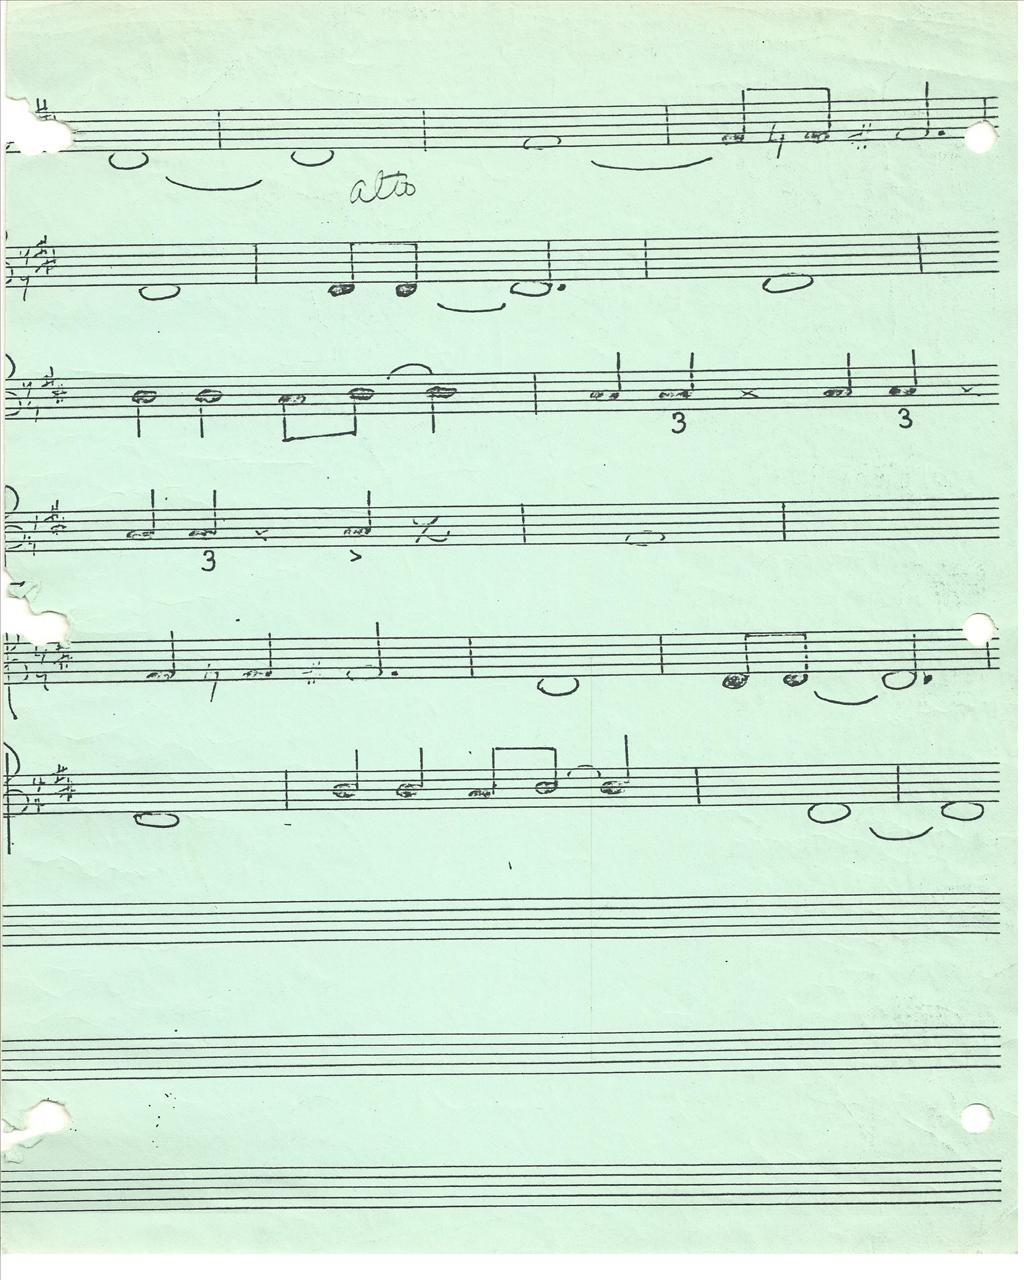 alto
3 3
3